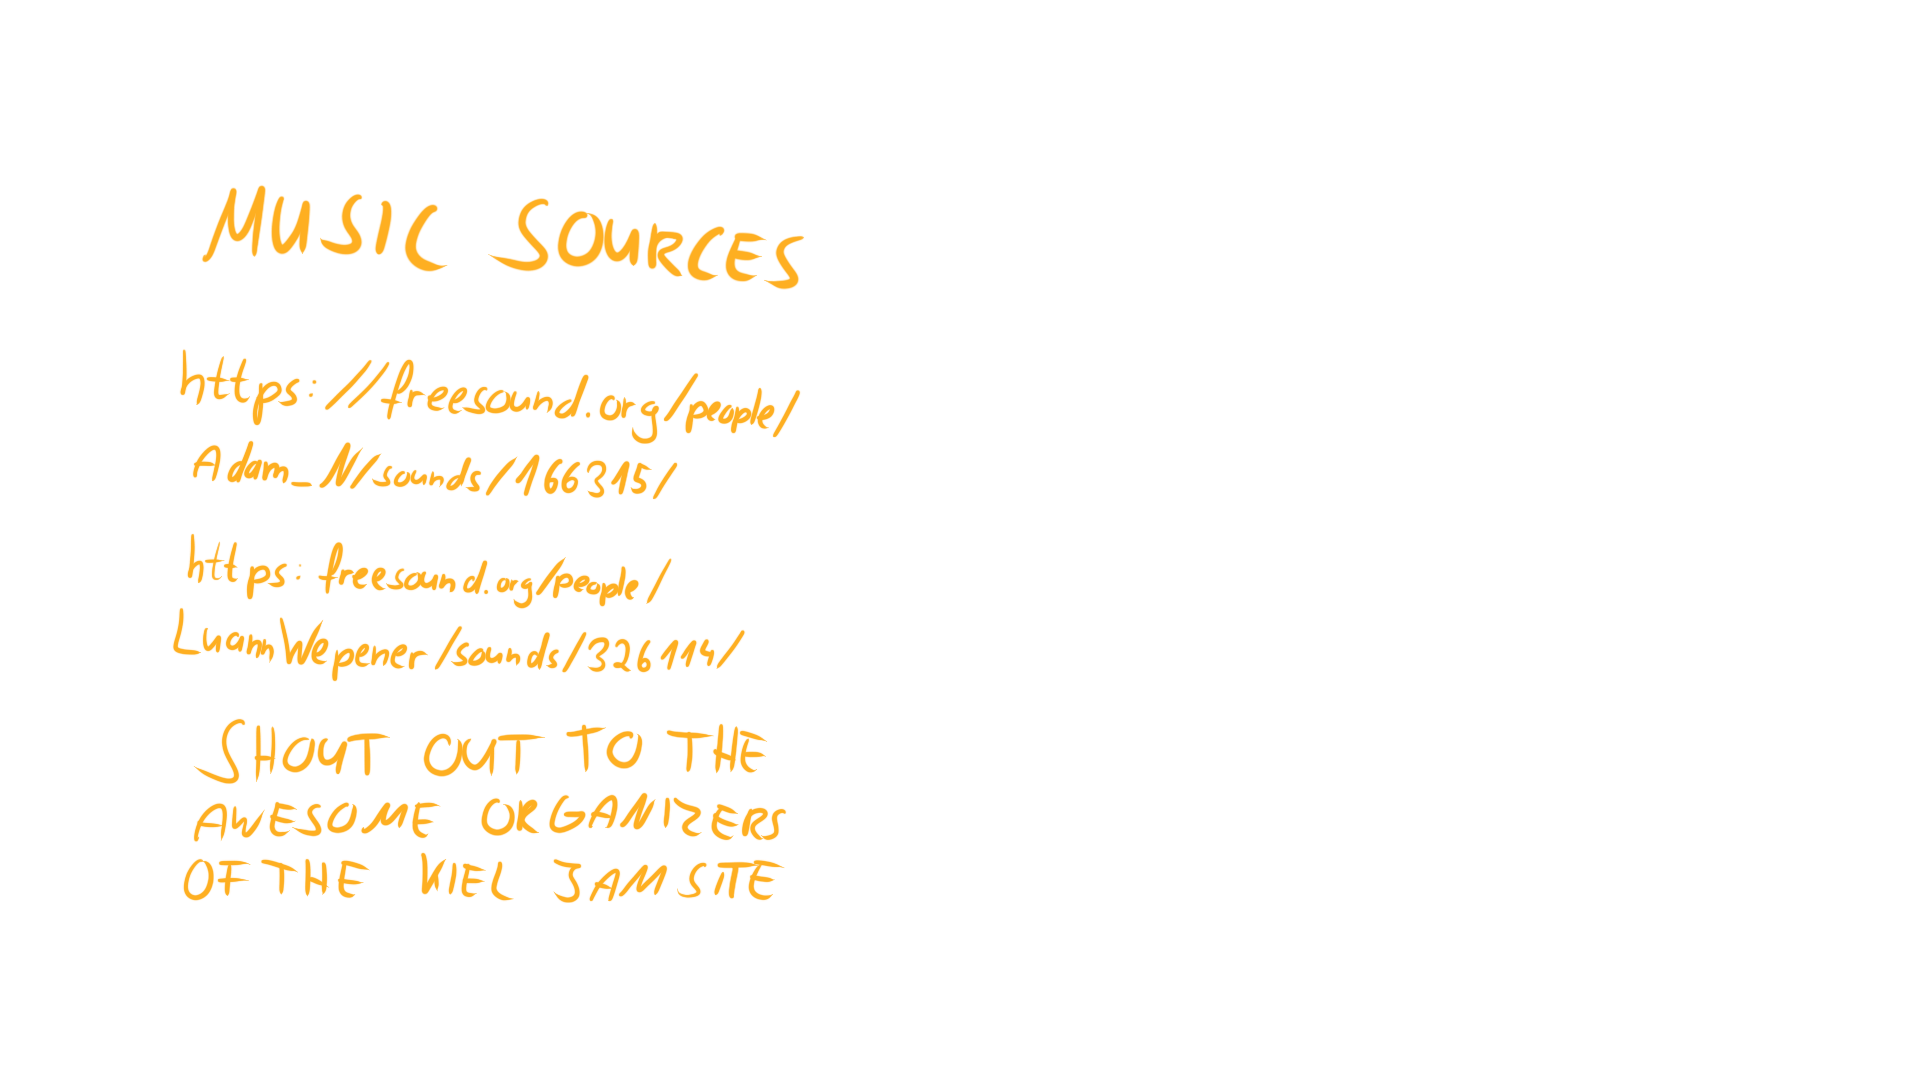 MUSIC SOURCES
https://freesound.org/people/
Adam_N/sounds/166315/
https: freesound.org/people/
LuannWepener/sounds/326114/
SHOUT OUT TO THE
AWESOME ORGANIZERS
OF THE KIEL JAM SITE